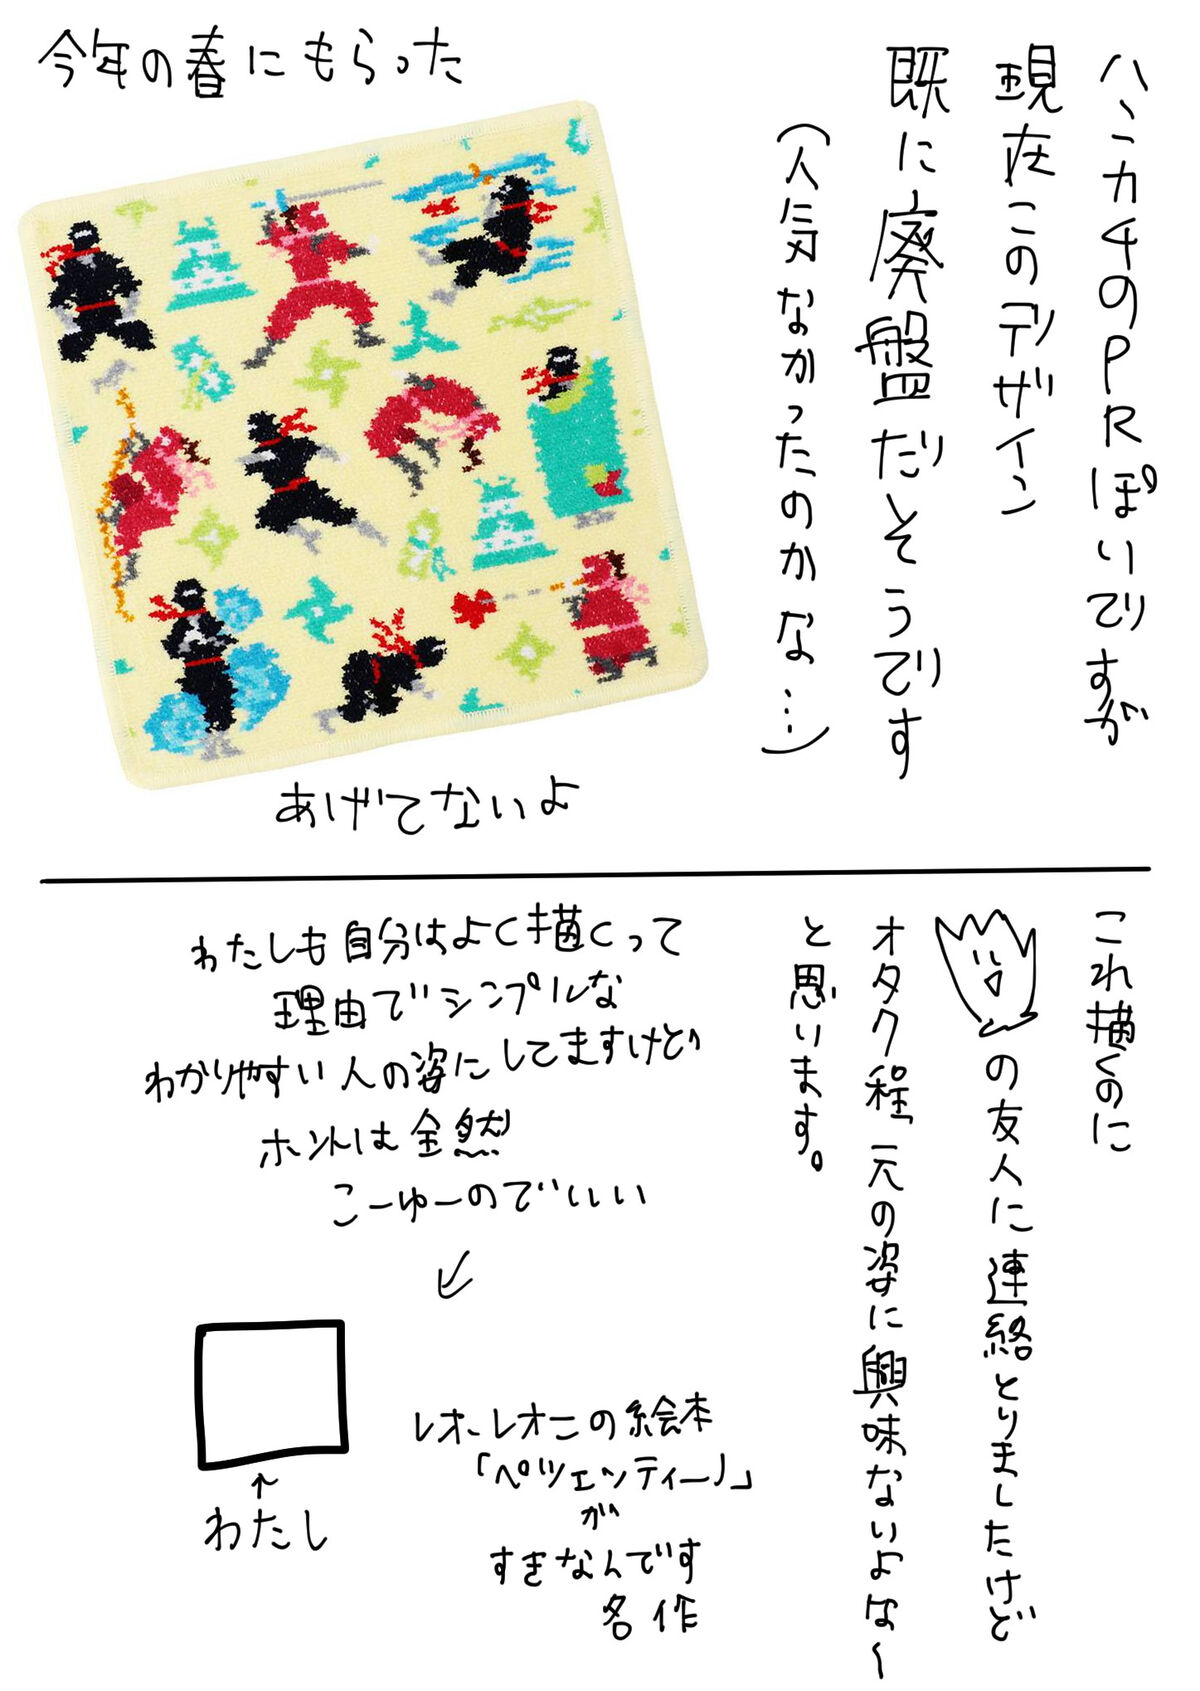 ハンカチのPRぽいですが
現在このデザイン
既に廃盤だそうです
(人気なかったのかな…)
今年の春にもらった
あげてないよ
これ描くのに
の友人に連絡とりましたけど
オタク程元の姿に興味ないよな〜
と思います。
わたしも自分はよく描くって
理由でシンプルな
わかりやすい人の姿にしてますけど
ホントは全然
こーゆーのでいい
↙
↑
わたし
レオ・レオニの絵本
「ペツェッティーノ」
が
すきなんです
名作